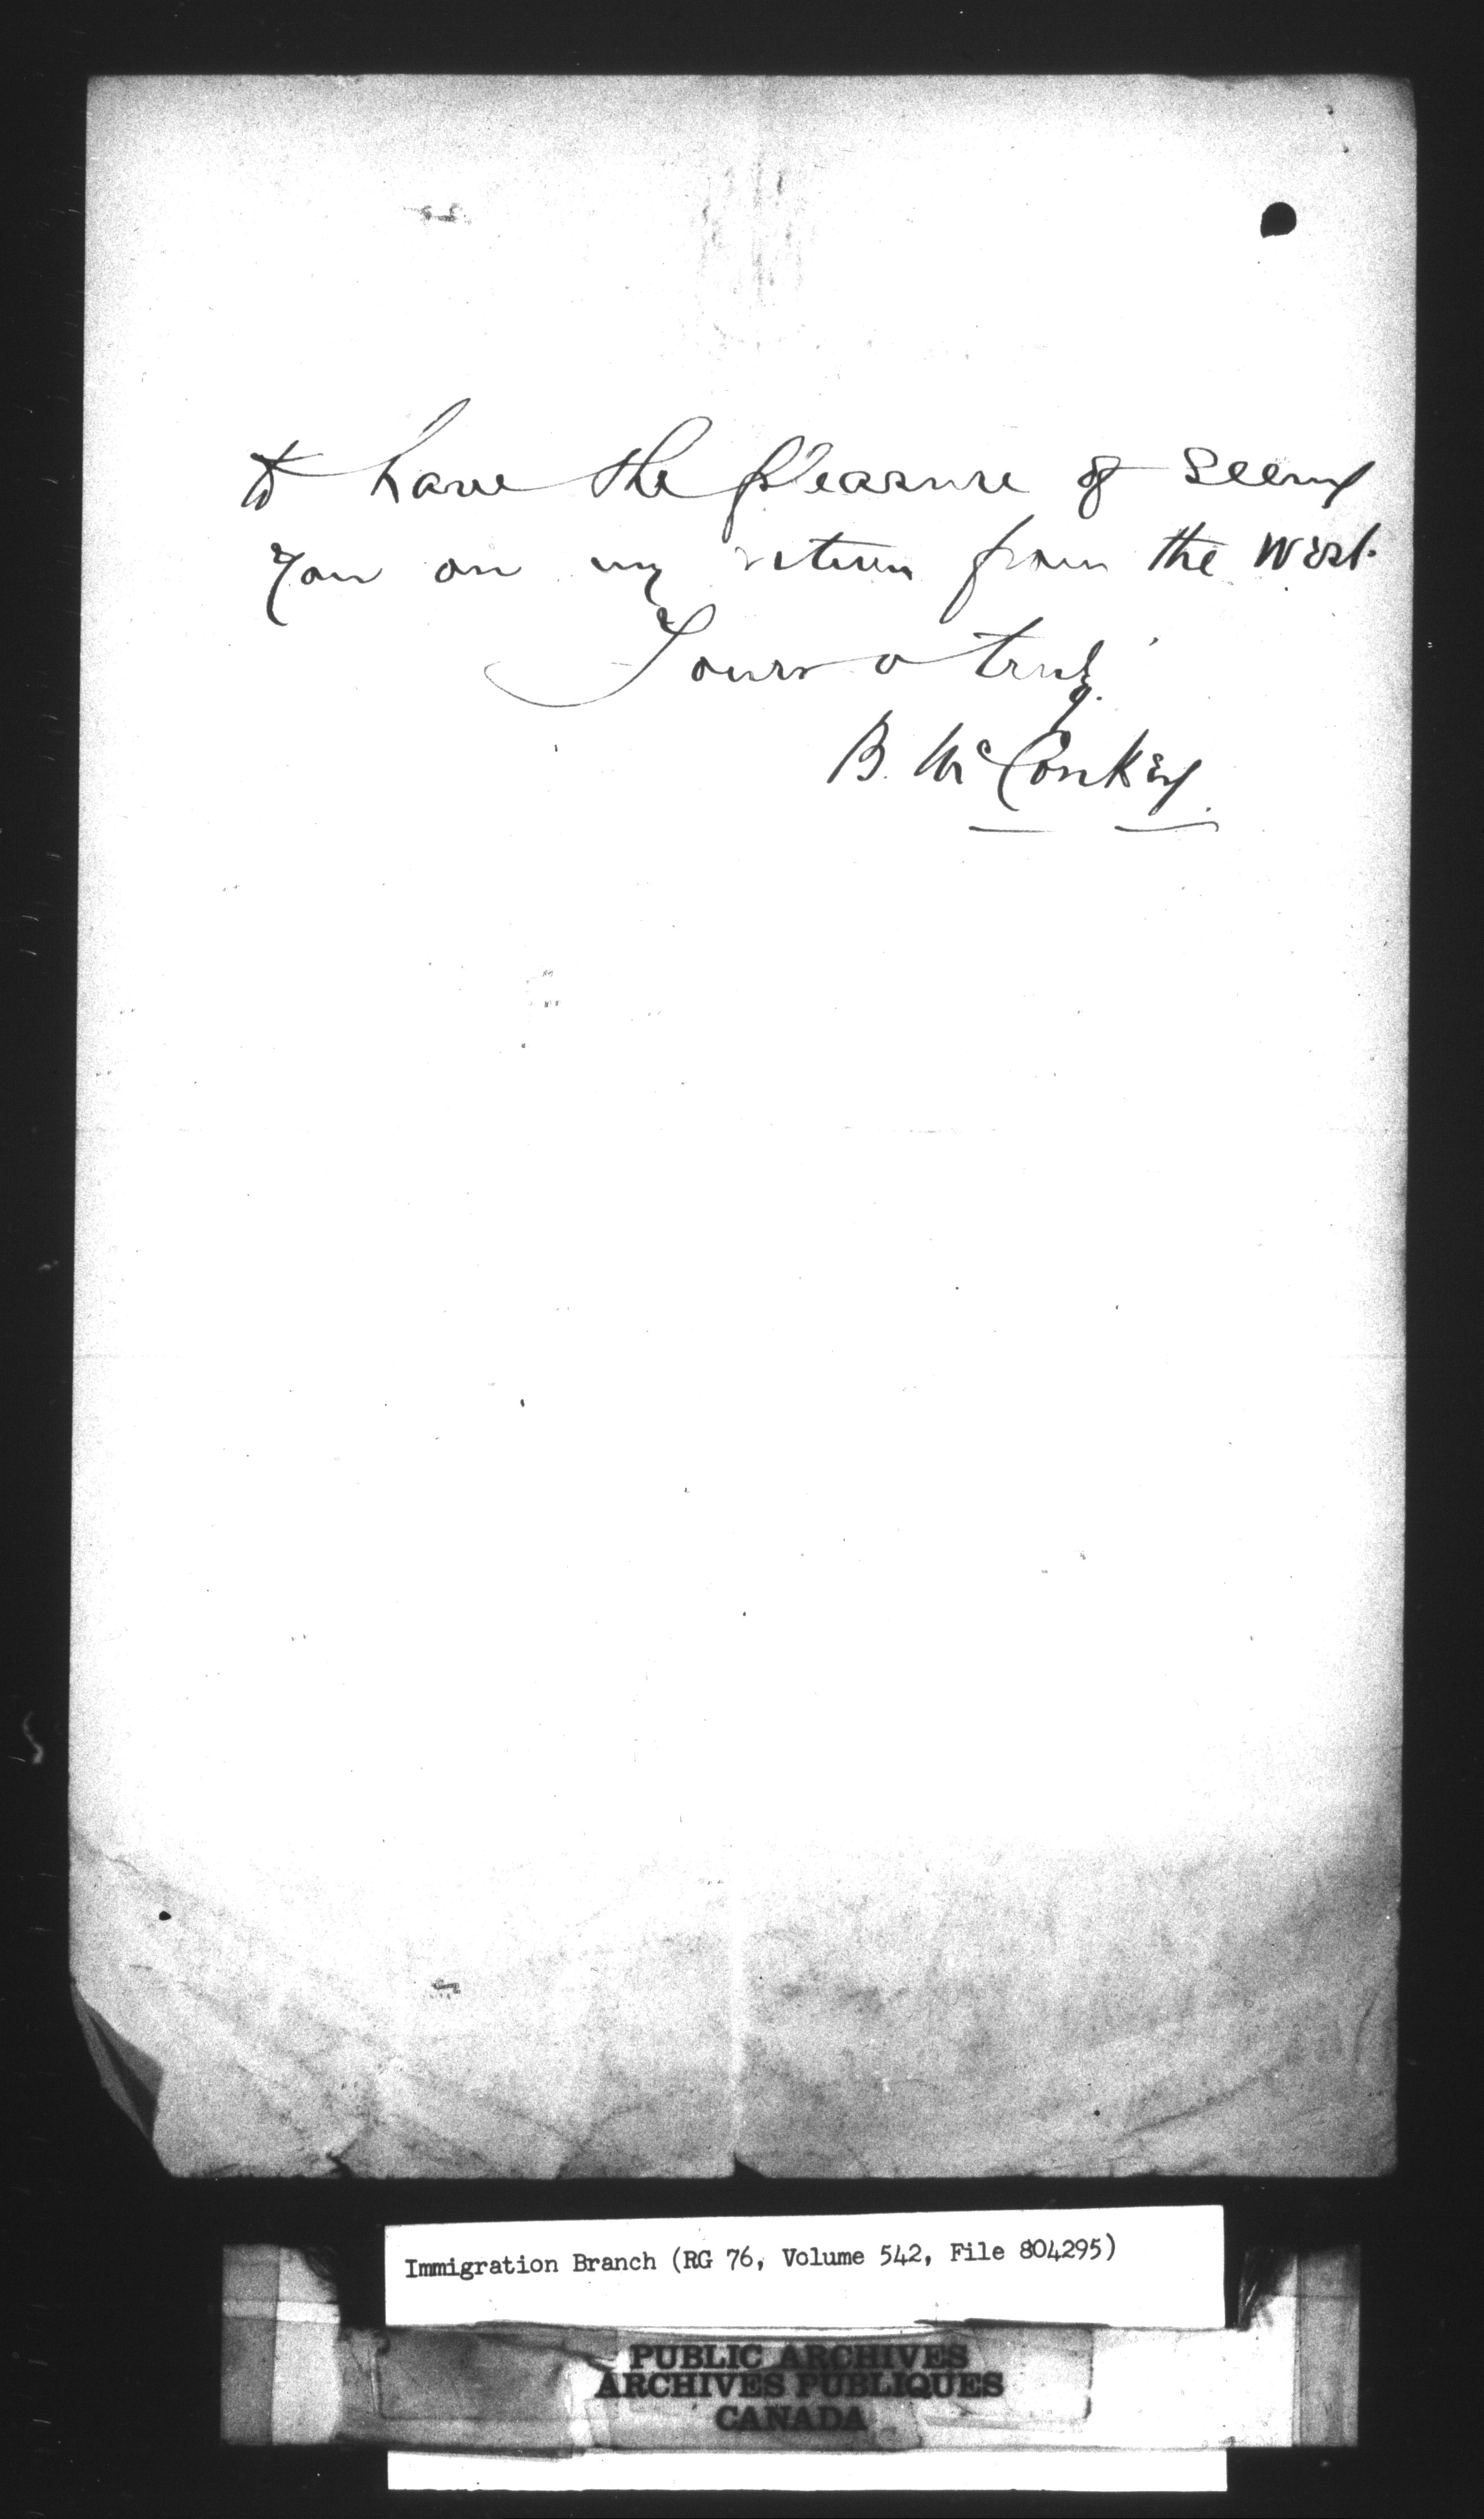 to have the pleasure of seeing
you on my return from the West.
Yours truly
B. McConkey.
Immigration Branch (RG 76, Volume 542, File 804295)
PUBLIC ARCHIVES
ARCHIVES PUBLIQUES
CANADA